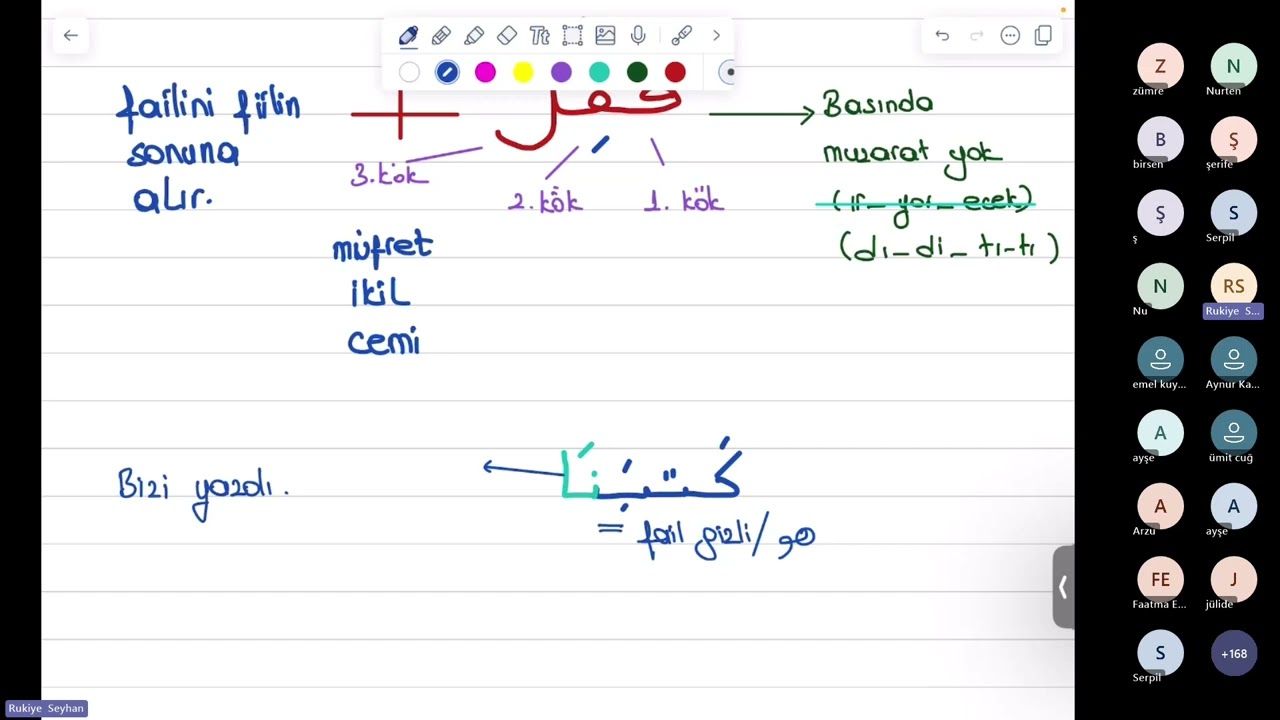 failini fiilin
sonuna
alır.
فعل
3. kök
2. kök
1. kök
Basında
muzarat yok
(ır_ yor_ ecek)
(dı_ di_ tı-tı)
müfret
ikil
cemi
Bizi yazdı.
كَتَبَنَا
= fail gizli/هو
Tt
Z
zümre
N
Nurten
B
birsen
Ş
şerife
Ş
ş
S
Serpil
N
Nu
RS
Rukiye S...
emel kuy...
Aynur Ka...
A
ayşe
ümit cuğ
A
Arzu
A
ayşe
FE
Faatma E...
J
jülide
S
Serpil
+168
Rukiye Seyhan